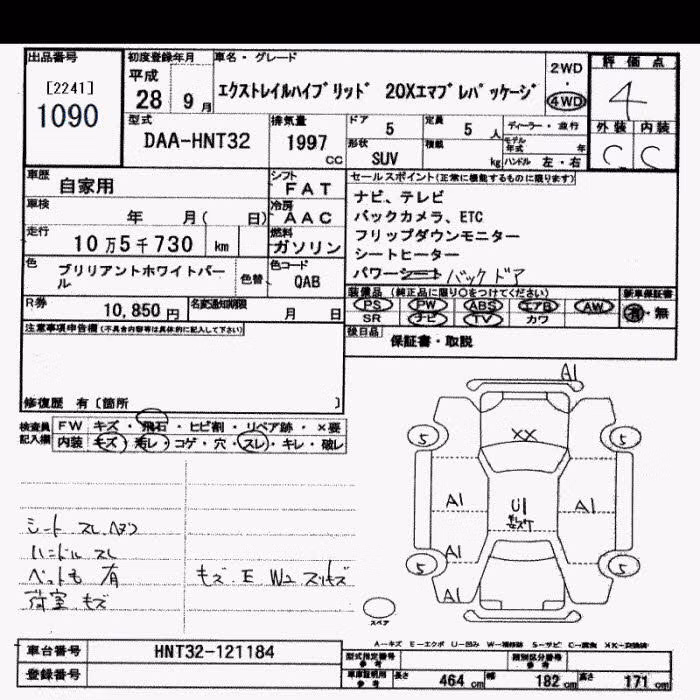 出品番号
[2241]
1090
初度登録年月
平成
28 9月
車名・グレード
エクストレイルハイブリッド 20Xエマブレパッケージ
2WD
・
4WD
評価点
4
外装 内装
C C
型式
DAA-HNT32
排気量
1997 CC
ドア 5
定員 5 人
形状 SUV
積載 kg
ディーラー・並行
モデル年式 年
ハンドル 左・右
車歴 自家用
車検 年 月( 日)
走行 10万5千730 km
色 ブリリアントホワイトパール
色替
シフト FAT
冷房 AAC
燃料 ガソリン
色コード QAB
R券 10,850円
名変通知期限 月 日
セールスポイント(正常に機能するものに限ります)
ナビ、テレビ
バックカメラ、ETC
フリップダウンモニター
シートヒーター
パワーシート バックドア
装備品(純正品に限り○をつけてください)
PS PW ABS エアB AW
SR ナビ TV カワ
新車保証書
有・無
後日品
保証書・取説
注意事項申告欄(不具合内容等は具体的に記入して下さい)
修復歴 有〔箇所 〕
検査員記入欄
FW キズ・飛石・ヒビ割・リペア跡・×要
内装 キズ・汚レ・コゲ・穴・スレ・キレ・破レ
シート スレ、
ハンドル スレ
ペット毛 有
荷室 キズ
キズ、E W2
A1
XX
5 5
A1 U1 A1
A1
5 5
A1
スペア
A－キズ E－エクボ U－凹み W－補修跡 S－サビ C－腐食 XX－交換済
車台番号 HNT32-121184
登録番号
型式指定番号 参考
類別区分番号 参考
車庫証明用 参考
長さ 464 cm 幅 182 cm 高さ 171 cm